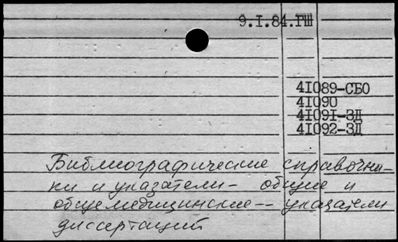 9.I.84.ГШ
41089-СБО
41090
41091-ЗД
41092-ЗД
Библиографические справочни-
ки и указатели - общие и
общемедицинские -- указатели
диссертаций